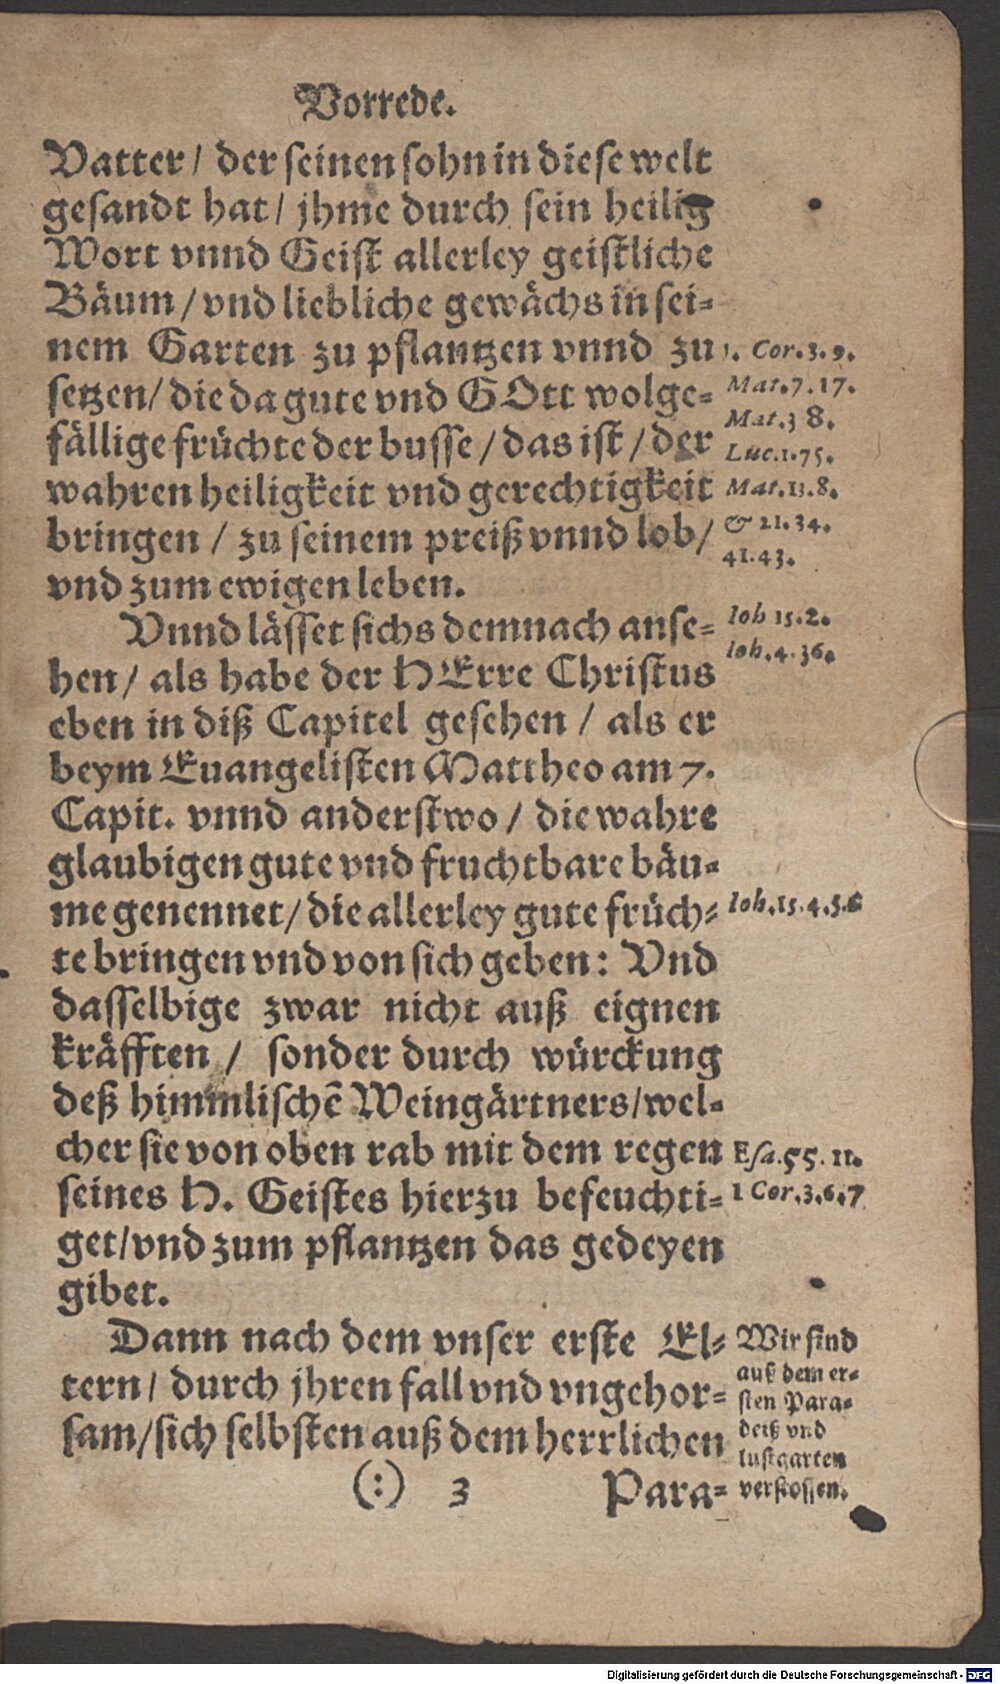 Vorrede.
Vatter / der seinen sohn in diese welt
gesandt hat / jhme durch sein heilig
Wort vnnd Geist allerley geistliche
Bäum / vnd liebliche gewächs in sei-
nem Garten zu pflantzen vnnd zu
setzen / die da gute vnd GOtt wolge-
fällige früchte der busse / das ist / der
wahren heiligkeit vnd gerechtigkeit
bringen / zu seinem preiß vnnd lob /
vnd zum ewigen leben.
1. Cor. 3. 9.
Mat. 7. 17.
Mat. 3 8.
Luc. 1. 75.
Mat. 13. 8.
& 21. 34.
41. 43.
Vnnd lässet sichs demnach anse-
hen / als habe der HErre Christus
eben in diß Capitel gesehen / als er
beym Euangelisten Mattheo am 7.
Capit. vnnd anderstwo / die wahre
glaubigen gute vnd fruchtbare bäu-
me genennet / die allerley gute früch-
te bringen vnd von sich geben: Vnd
dasselbige zwar nicht auß eignen
kräfften / sonder durch würckung
deß himmlischẽ Weingärtners / wel-
cher sie von oben rab mit dem regen
seines H. Geistes hierzu befeuchti-
get / vnd zum pflantzen das gedeyen
gibet.
Ioh 15. 2.
Ioh. 4. 36.
Ioh. 15. 4. 5. 6
Esa. 55. 11.
1 Cor. 3. 6. 7
Dann nach dem vnser erste El-
tern / durch jhren fall vnd vngehor-
sam / sich selbsten auß dem herrlichen
Wir sind
auß dem er-
sten Para-
deiß vnd
lustgarten
verstossen.
(:) 3
Para-
Digitalisierung gefördert durch die Deutsche Forschungsgemeinschaft - DFG